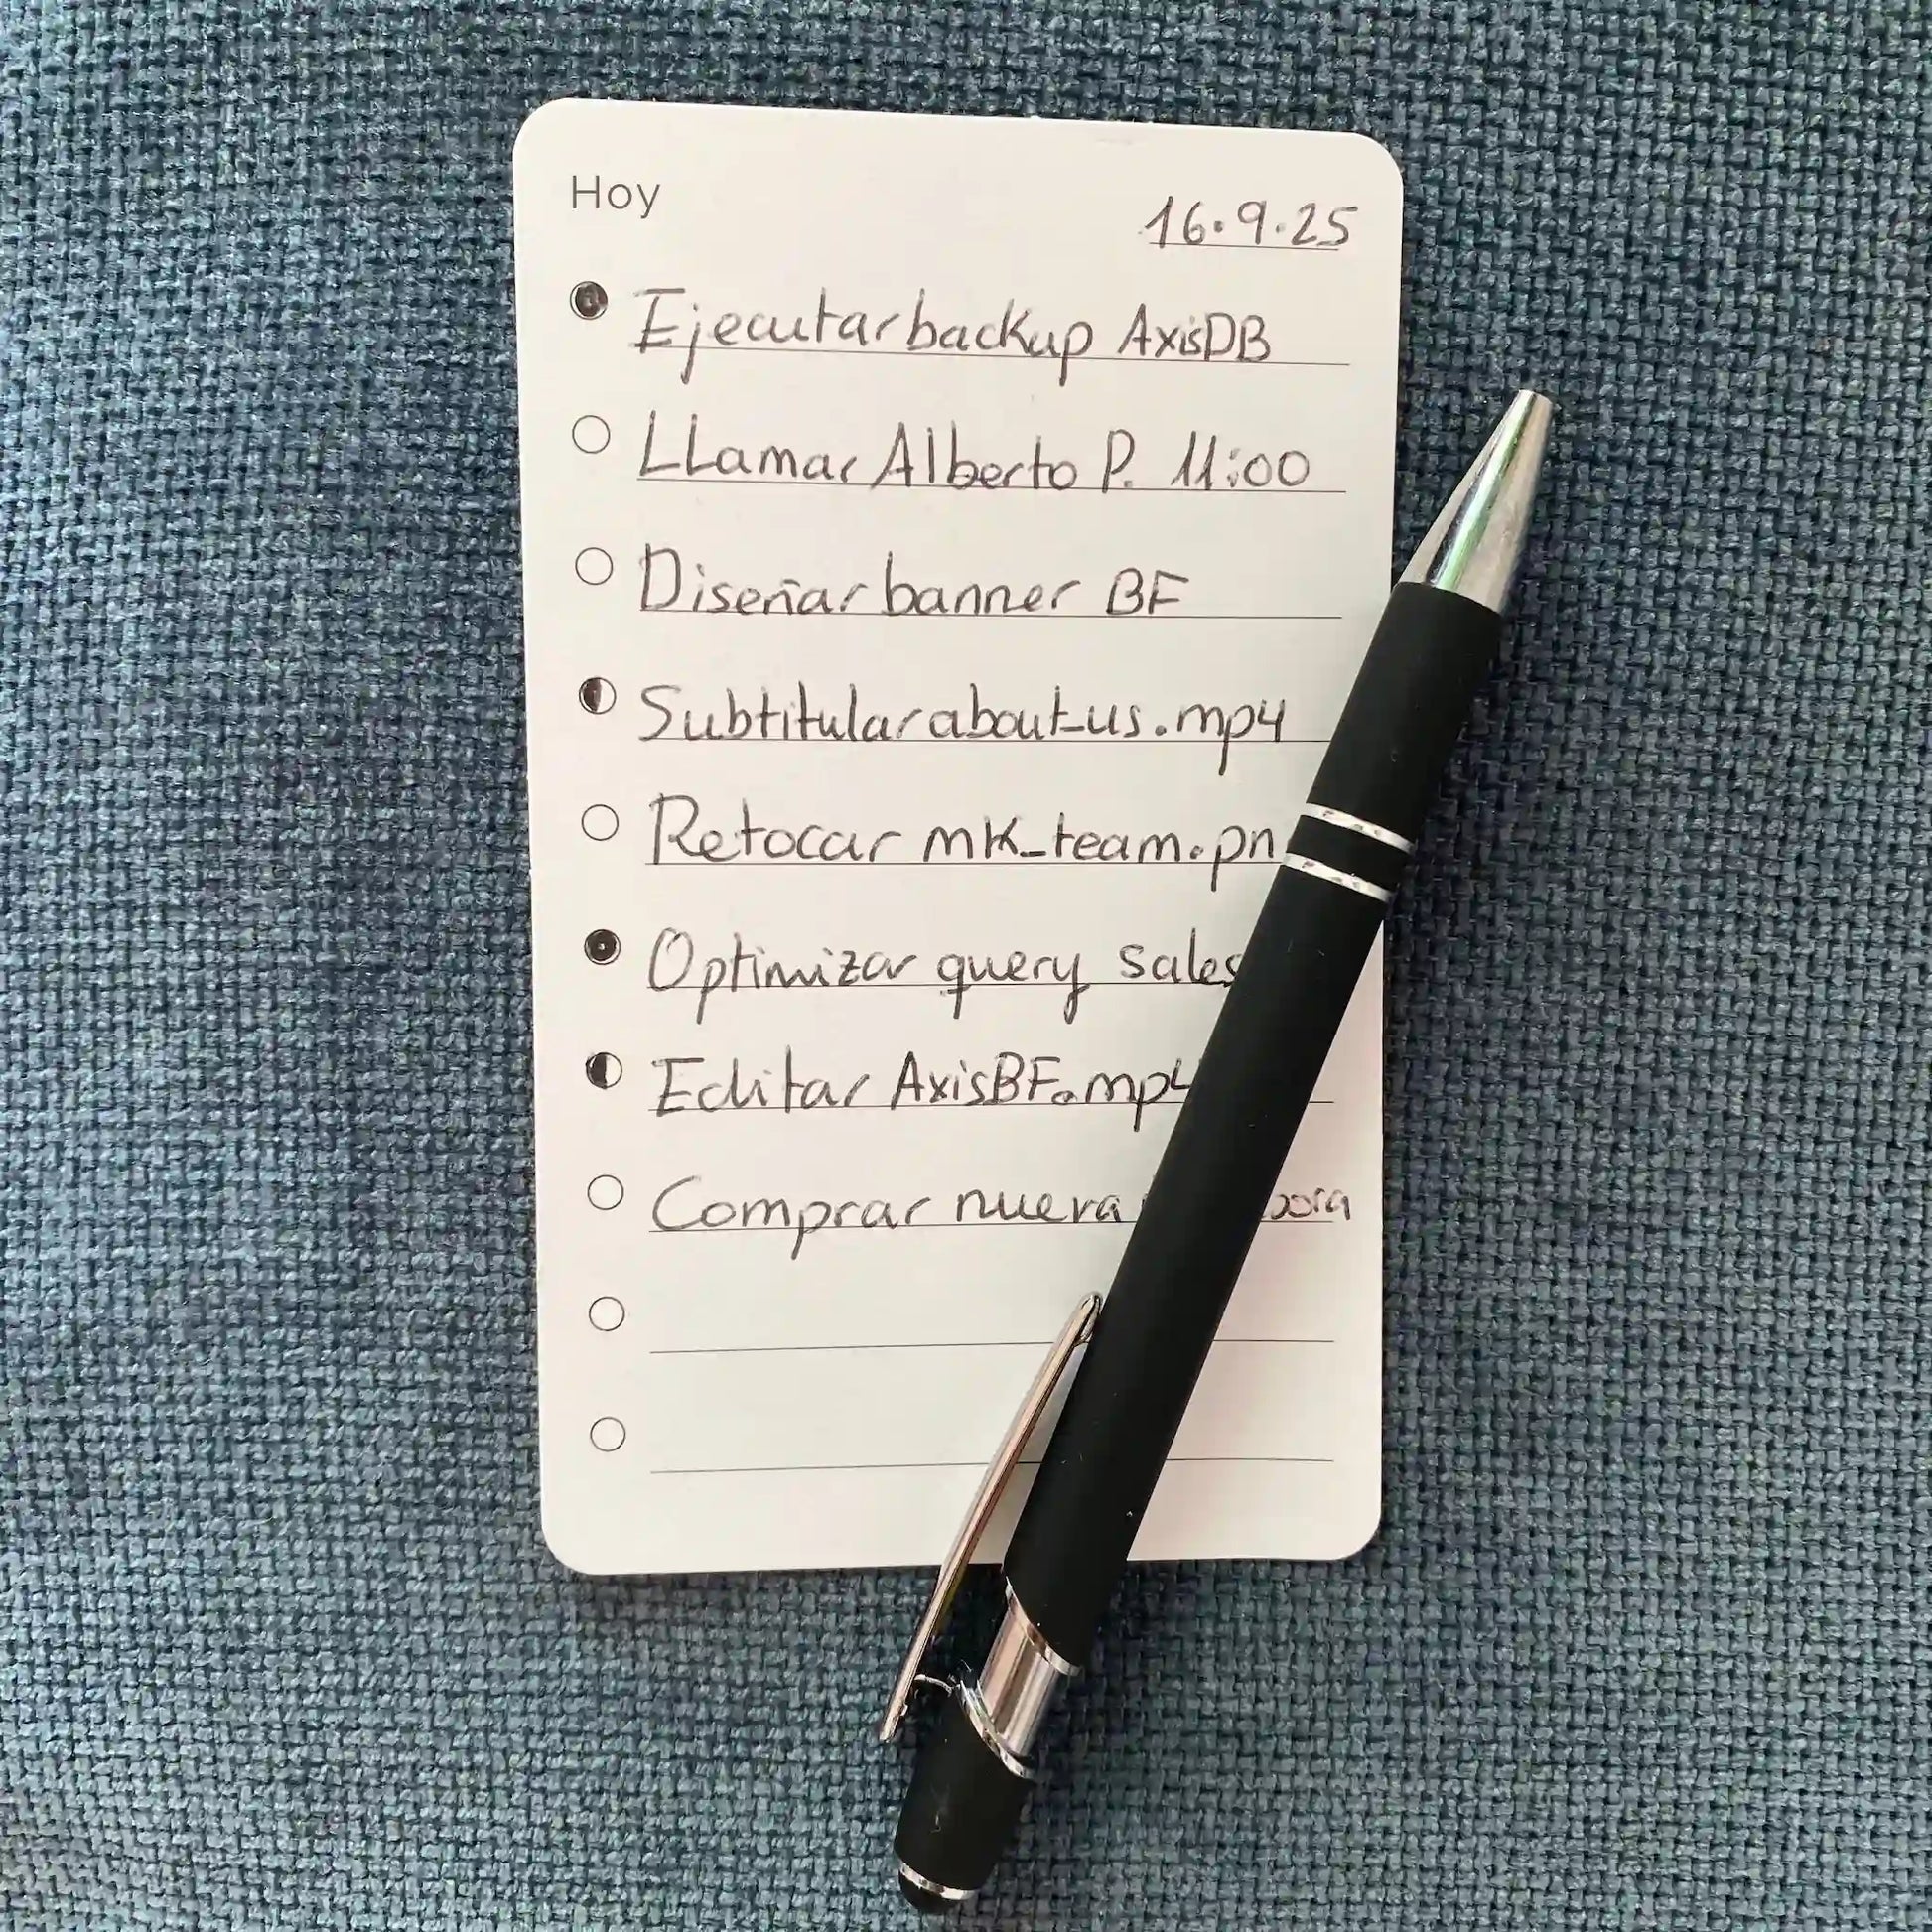 Hoy
16.9.25
Ejecutar backup AxisDB
LLamar Alberto P. 11:00
Diseñar banner BF
Subtitular about_us.mp4
Retocar mk_team.pn
Optimizar query sales
Editar AxisBF.mp4
Comprar nueva